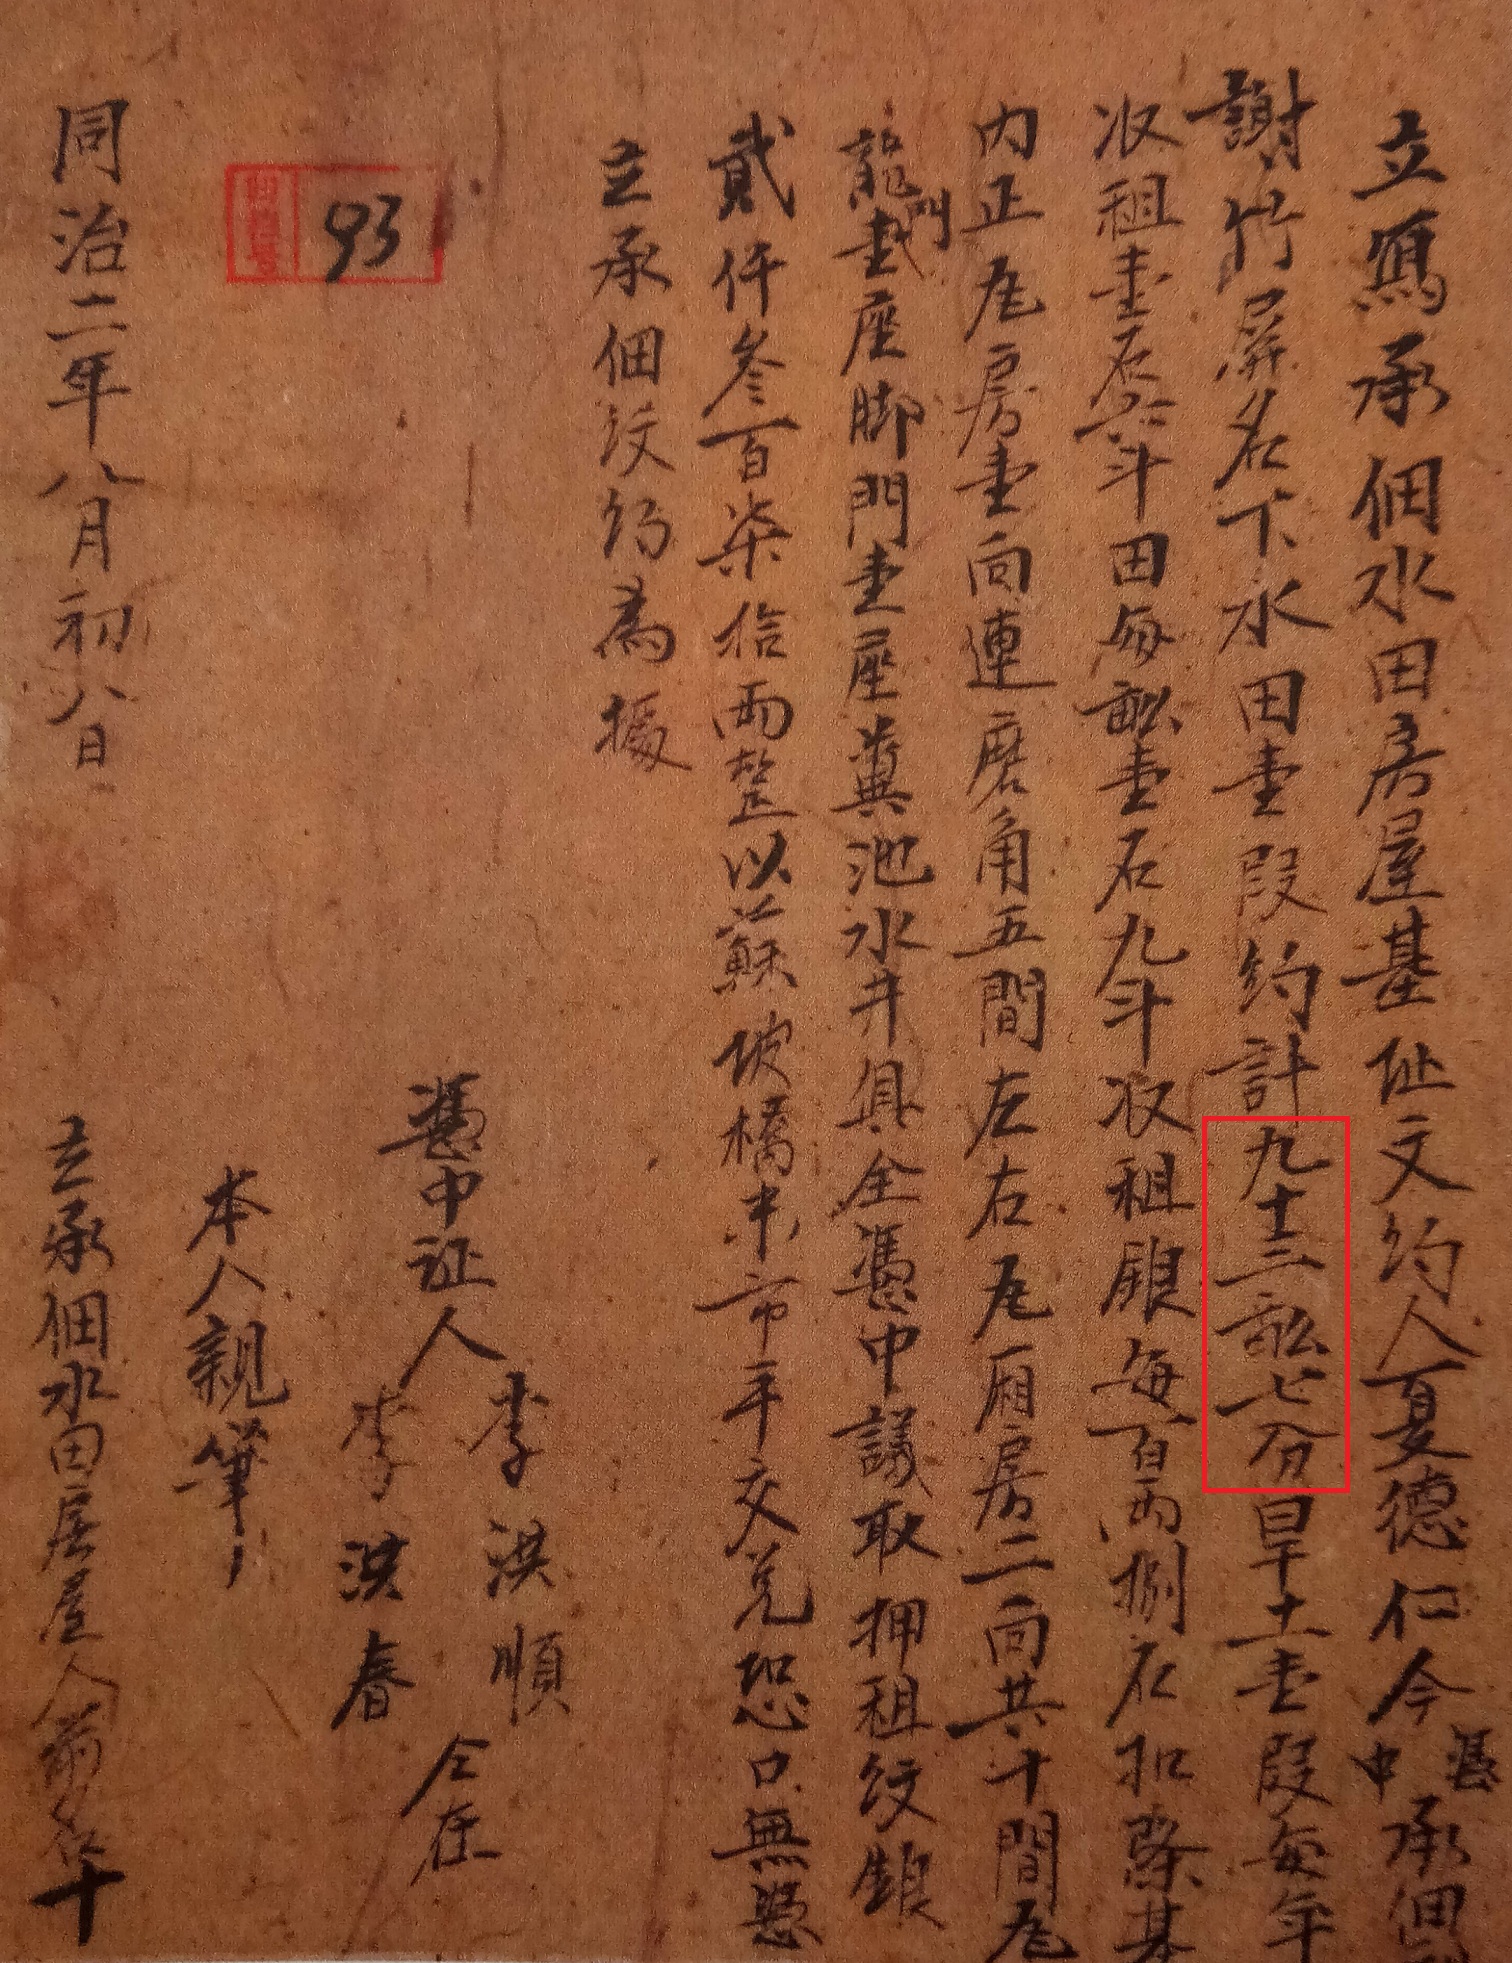 立寫承佃水田房屋基址文約人夏德仁今憑中承佃
謝竹屏名下水田壹段約計九十三畝七分旱土壹段每年
收租壹石六斗田每畝壹石九斗收租銀每百両捌石扣除基
内正瓦房壹向連磨角五間左右瓦厢房二向共十間瓦
龍門壹座脚門壹座糞池水井俱全憑中議取押租纹銀
貳仟叁百柒拾両整以蘇坡橋米市平交兑恐口無憑
立承佃纹約為據
憑中証人
李洪順
李洪春
仝在
本人親筆
93
同治二年八月初八日
立承佃水田房屋人前名十